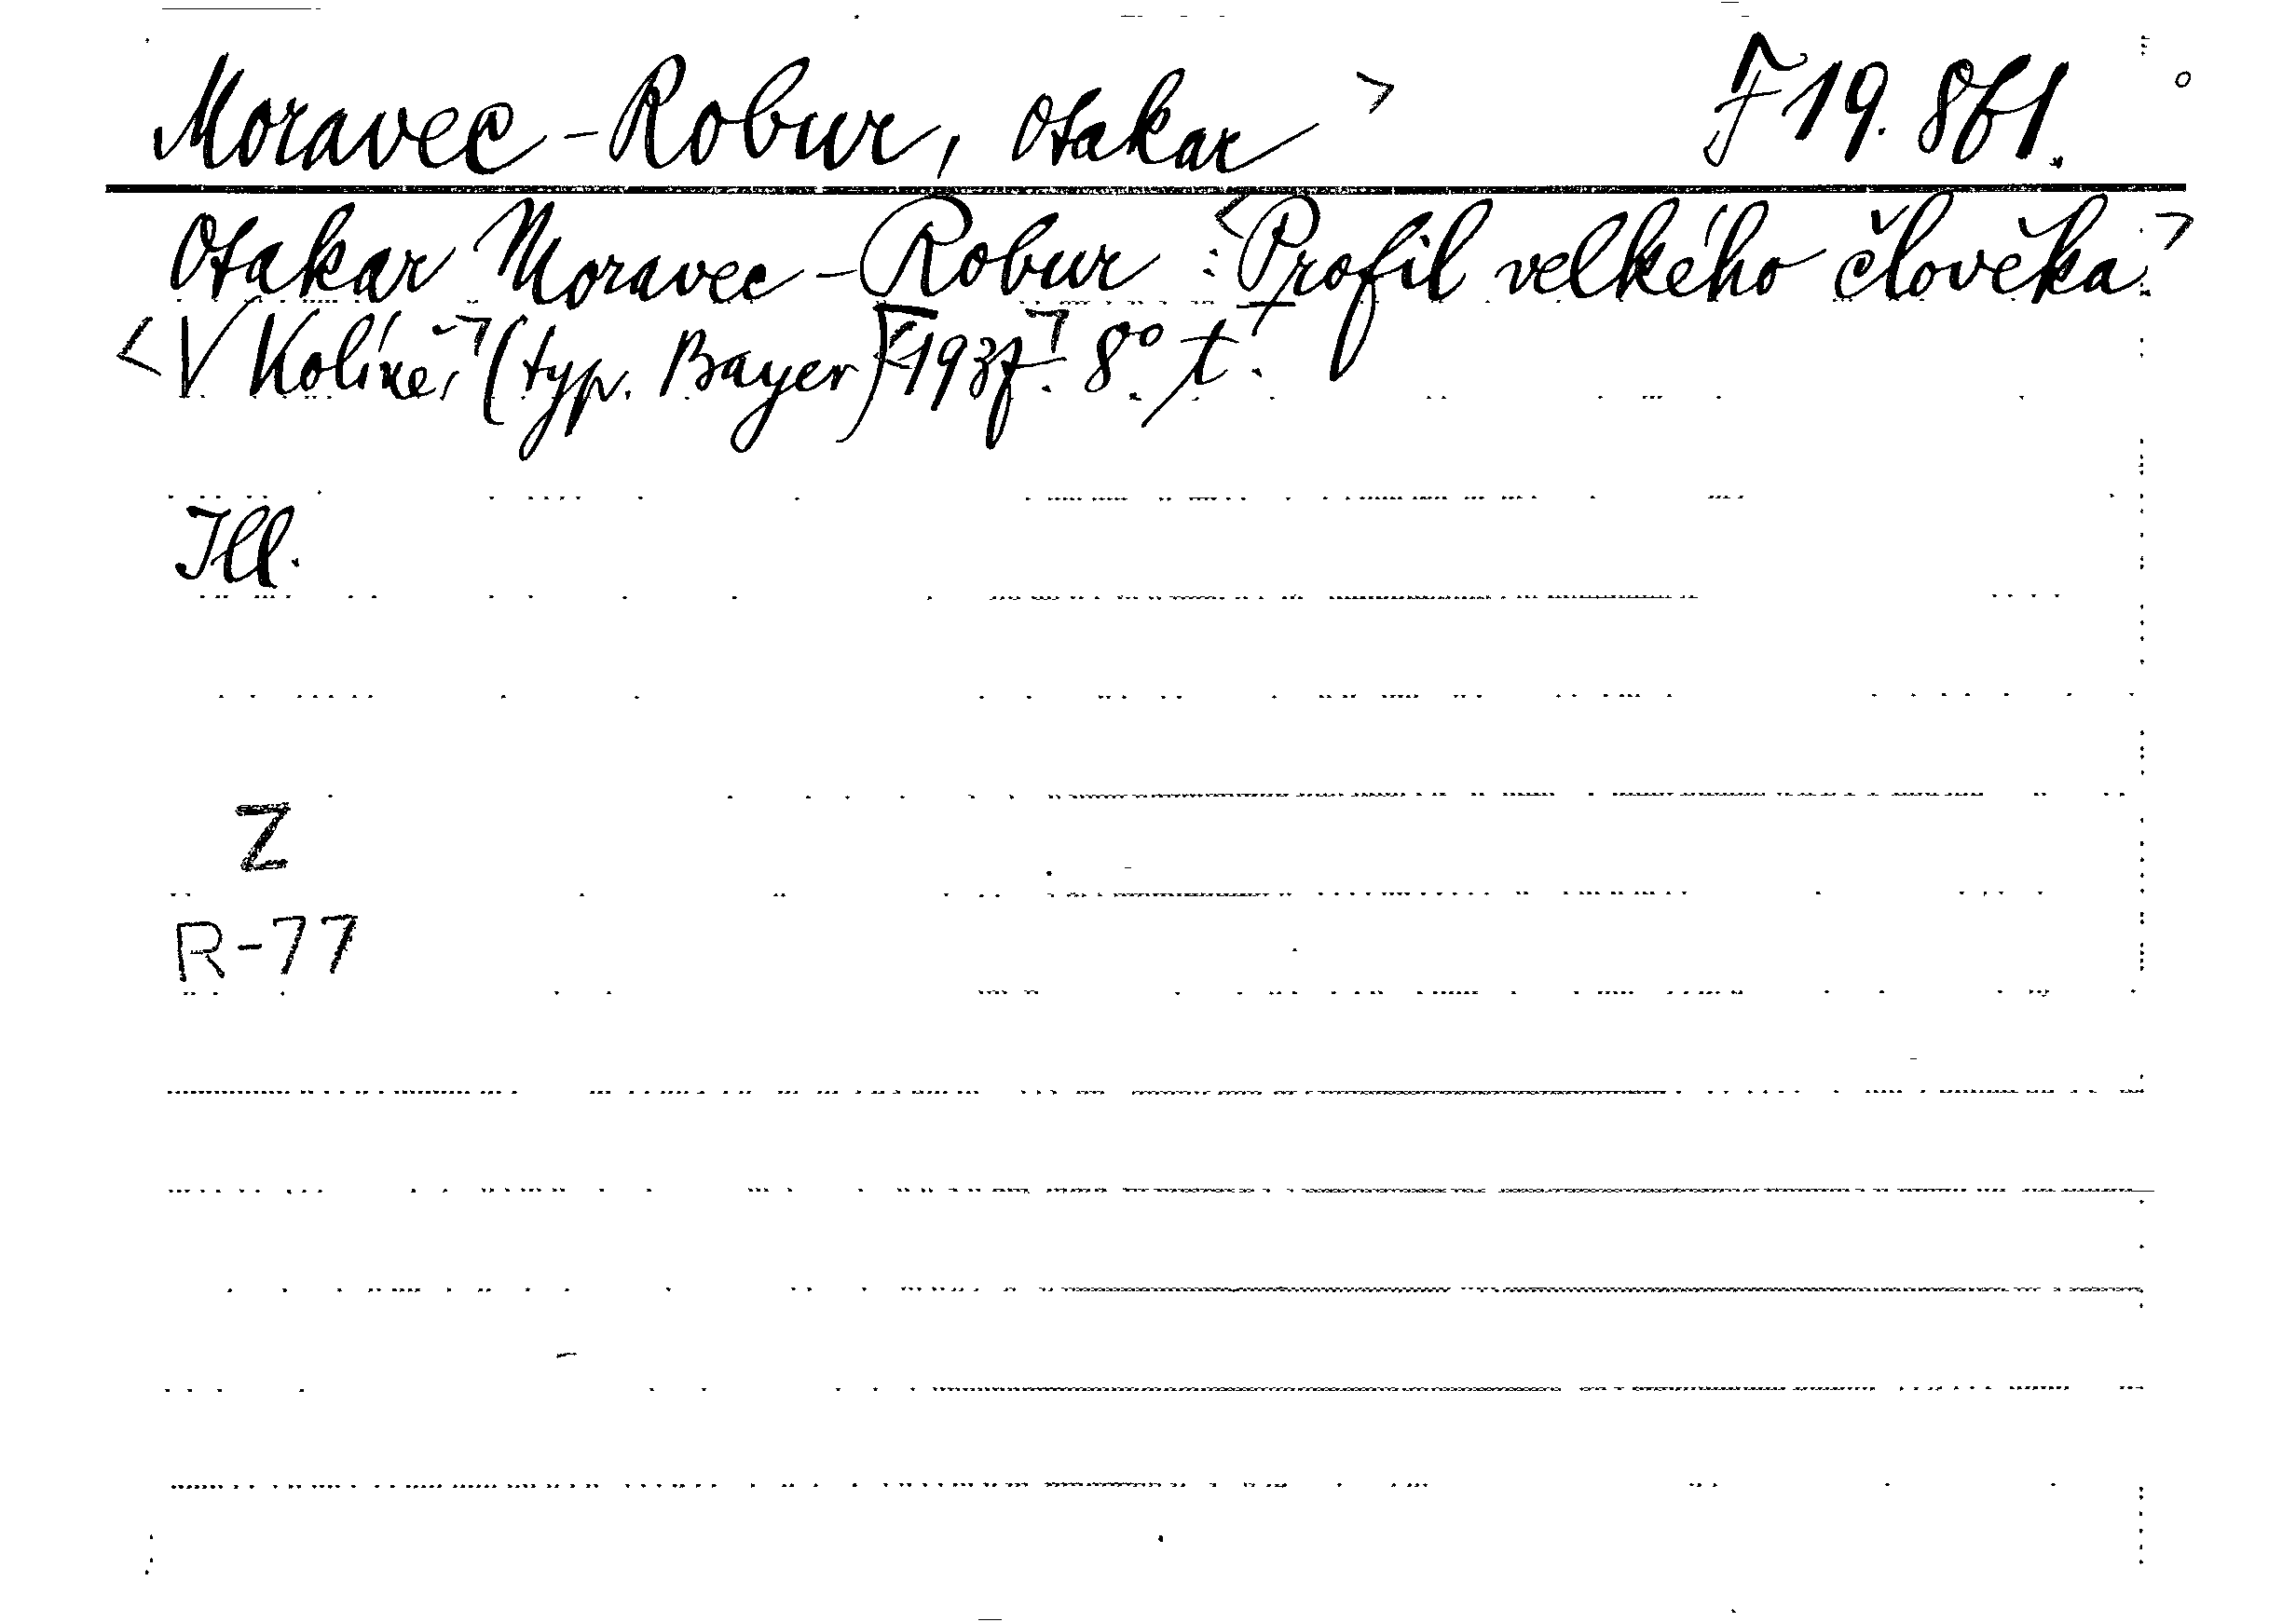 Moravec-Robur, Otakar > F 19.861.
Otakar Moravec-Robur: <Profil velkého člověka.>
<V Kolíně,> (typ. Bayer) <1937>. 8°. t.
Ill.
Z
R-77